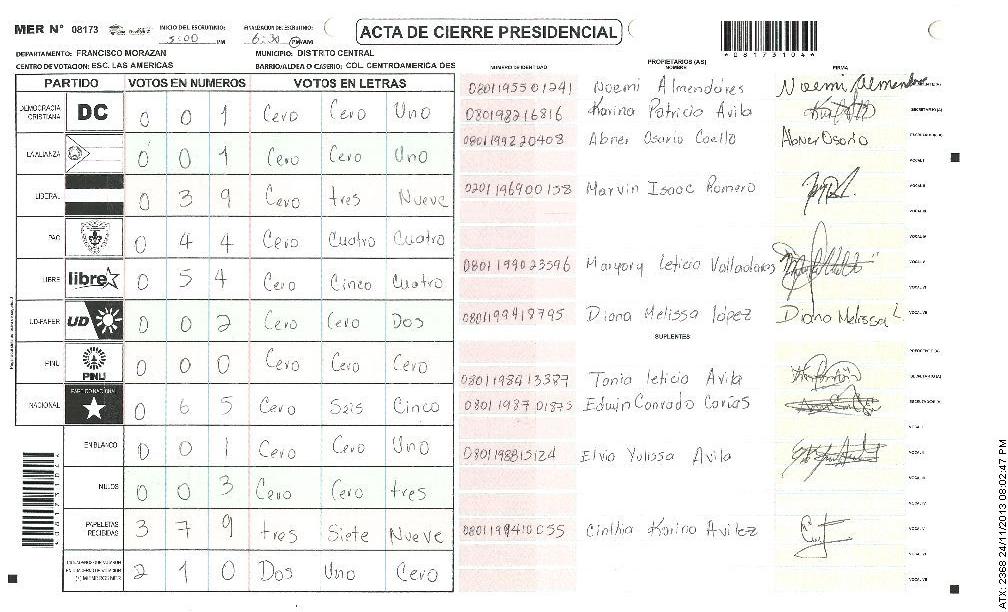 MER N° 08173 INICIO DEL ESCRUTINIO: 5:00 PM FINALIZACION DEL ESCRUTINIO: 6:30 PM/AM
ACTA DE CIERRE PRESIDENCIAL
DEPARTAMENTO: FRANCISCO MORAZAN MUNICIPIO: DISTRITO CENTRAL
CENTRO DE VOTACION: ESC. LAS AMERICAS BARRIO/ALDEA O CASERIO: COL. CENTROAMERICA OES
PARTIDO VOTOS EN NUMEROS VOTOS EN LETRAS
DEMOCRACIA CRISTIANA DC 0 0 1 Cero Cero Uno
LA ALIANZA 0 0 1 Cero Cero Uno
LIBERAL 0 3 9 Cero tres Nueve
PAC 0 4 4 Cero Cuatro Cuatro
LIBRE libre 0 5 4 Cero Cinco Cuatro
UD-FAPER UD 0 0 2 Cero Cero Dos
PINU PINU 0 0 0 Cero Cero Cero
NACIONAL PARTIDO NACIONAL 0 6 5 Cero Seis Cinco
EN BLANCO 0 0 1 Cero Cero Uno
NULOS 0 0 3 Cero Cero tres
PAPELETAS RECIBIDAS 3 7 9 tres Siete Nueve
2 1 0 Dos Uno Cero
PROPIETARIOS (AS)
NUMERO DE IDENTIDAD NOMBRE FIRMA
0801195501241 Noemi Almendares Noemi Almendares
080198216816 Karina Patricia Avila
0801199220408 Abner Osorio Coello Abner Osorio
0201196900158 Marvin Isaac Romero
0801199023596 Maryory Leticia Valladares
0801199418795 Diana Melissa López Diana Melissa L.
SUPLENTES
0801198413387 Tania leticia Avila
0801198701875 Edwin Conrado Carías
0801198815124 Elvia Yulissa Avila
0801199410055 Cinthia Karina Avilez
0 8 1 7 3 1 0 4 6
ATX: 2368 24/11/2013 08:02:47 PM